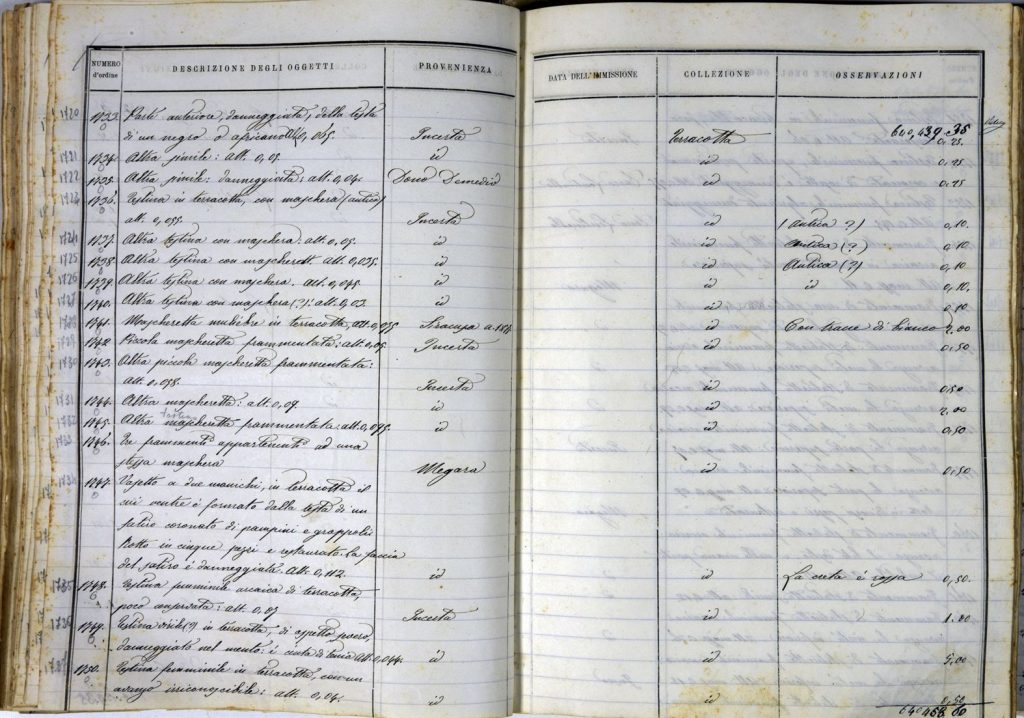 NUMERO d'ordine
DESCRIZIONE DEGLI OGGETTI
PROVENIENZA
DATA DELL'IMMISSIONE
COLLEZIONE
OSSERVAZIONI
1720 1733. Parte anteriore, danneggiata, della testa
di un negro o africano. Alt. 0,065. Incerta Terracotta 640,439.35 0,25.
1721 1734. Altra simile: alt. 0,05 id id 0,25
1722 1735. Altra simile: danneggiata: alt. 0,04. id 0,25
1723 1736. Testina in terracotta, con maschera (antica)
alt. 0,055. Incerta id (Antica?) 0,10
1724 1737. Altra testina con maschera: alt. 0,05. id id Antica (?) 0,10
1725 1738. Altra testina con alt. 0,035. id id Antica (?) 0,10
1726 1739. Altra testina con maschera. alt. 0,045 id id id 0,10.
1740. Altra testina con maschera (?): alt. 0,03 id 0,10
1741. Mascheretta muliebre in terracotta, alt. 0,075 Siracusa id Con tracce di bianco 2.00
1742. Piccola mascheretta frammentata: alt. 0,05 Incerta id 0,50
1730 1743. Altra piccola mascheretta frammentata:
alt. 0,055. Incerta id 0,50
1731 1744. Altra mascheretta: alt. 0,07. id id 2,00
1732 1745. Altra mascheretta frammentata alt. 0,075. id id 0,50
1746. Tre frammenti appartenenti ad una
stessa maschera Megara id 0,50
1747. Vasetto a due manichi, in terracotta il
cui ventre è formato dalla testa di un
satiro coronato di pampini e grappoli
Rotto in cinque pezzi e restaurato. La faccia
del satiro è danneggiata. Alt. 0,112. id id La creta è rossa 0,50.
1735 1748. Testina femminile arcaica di terracotta,
poco conservata: alt. 0,07 Incerta id
1736 1749. Testina virile (?) in terracotta, di aspetto
danneggiato nel mento: è cinta di tenia alt. 0,044. id id 5,00
1750. Testina femminile in terracotta, con un
avanzo irriconoscibile: alt. 0,04. id id 0,50
640458.60